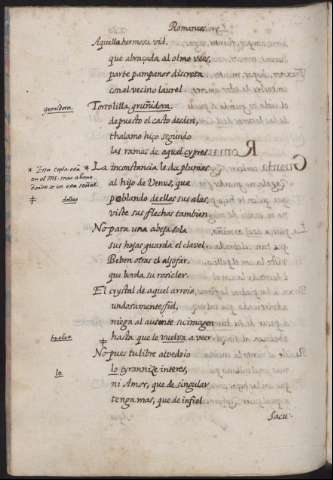 Romances.
Aquella hermosa vid,
que abraçada al olmo veis,
parte pampanos discreta
con el vecino laurel
gemidora. Tortolilla gruñidora,
depuesto el casto desden,
thalamo hiço segundo
las ramas de aquel cypres.
La inconstancia le dió plumas
al hijo de Venus, que
poblando dellas sus alas,
dellas
viste sus flechas tambien
No para una abeja sola
sus hojas guarda el clavel
Beben otras el aljofar,
que borda su rosicler.
El crystal de aquel arroio,
undosamente fiel,
niega al ausente su imagen
hasta que lo vuelva a veer
No pues tu libre alvedrio
lo tyrannize interes,
lo
ni Amor, que de singular
tenga mas, que de infiel
Sacu